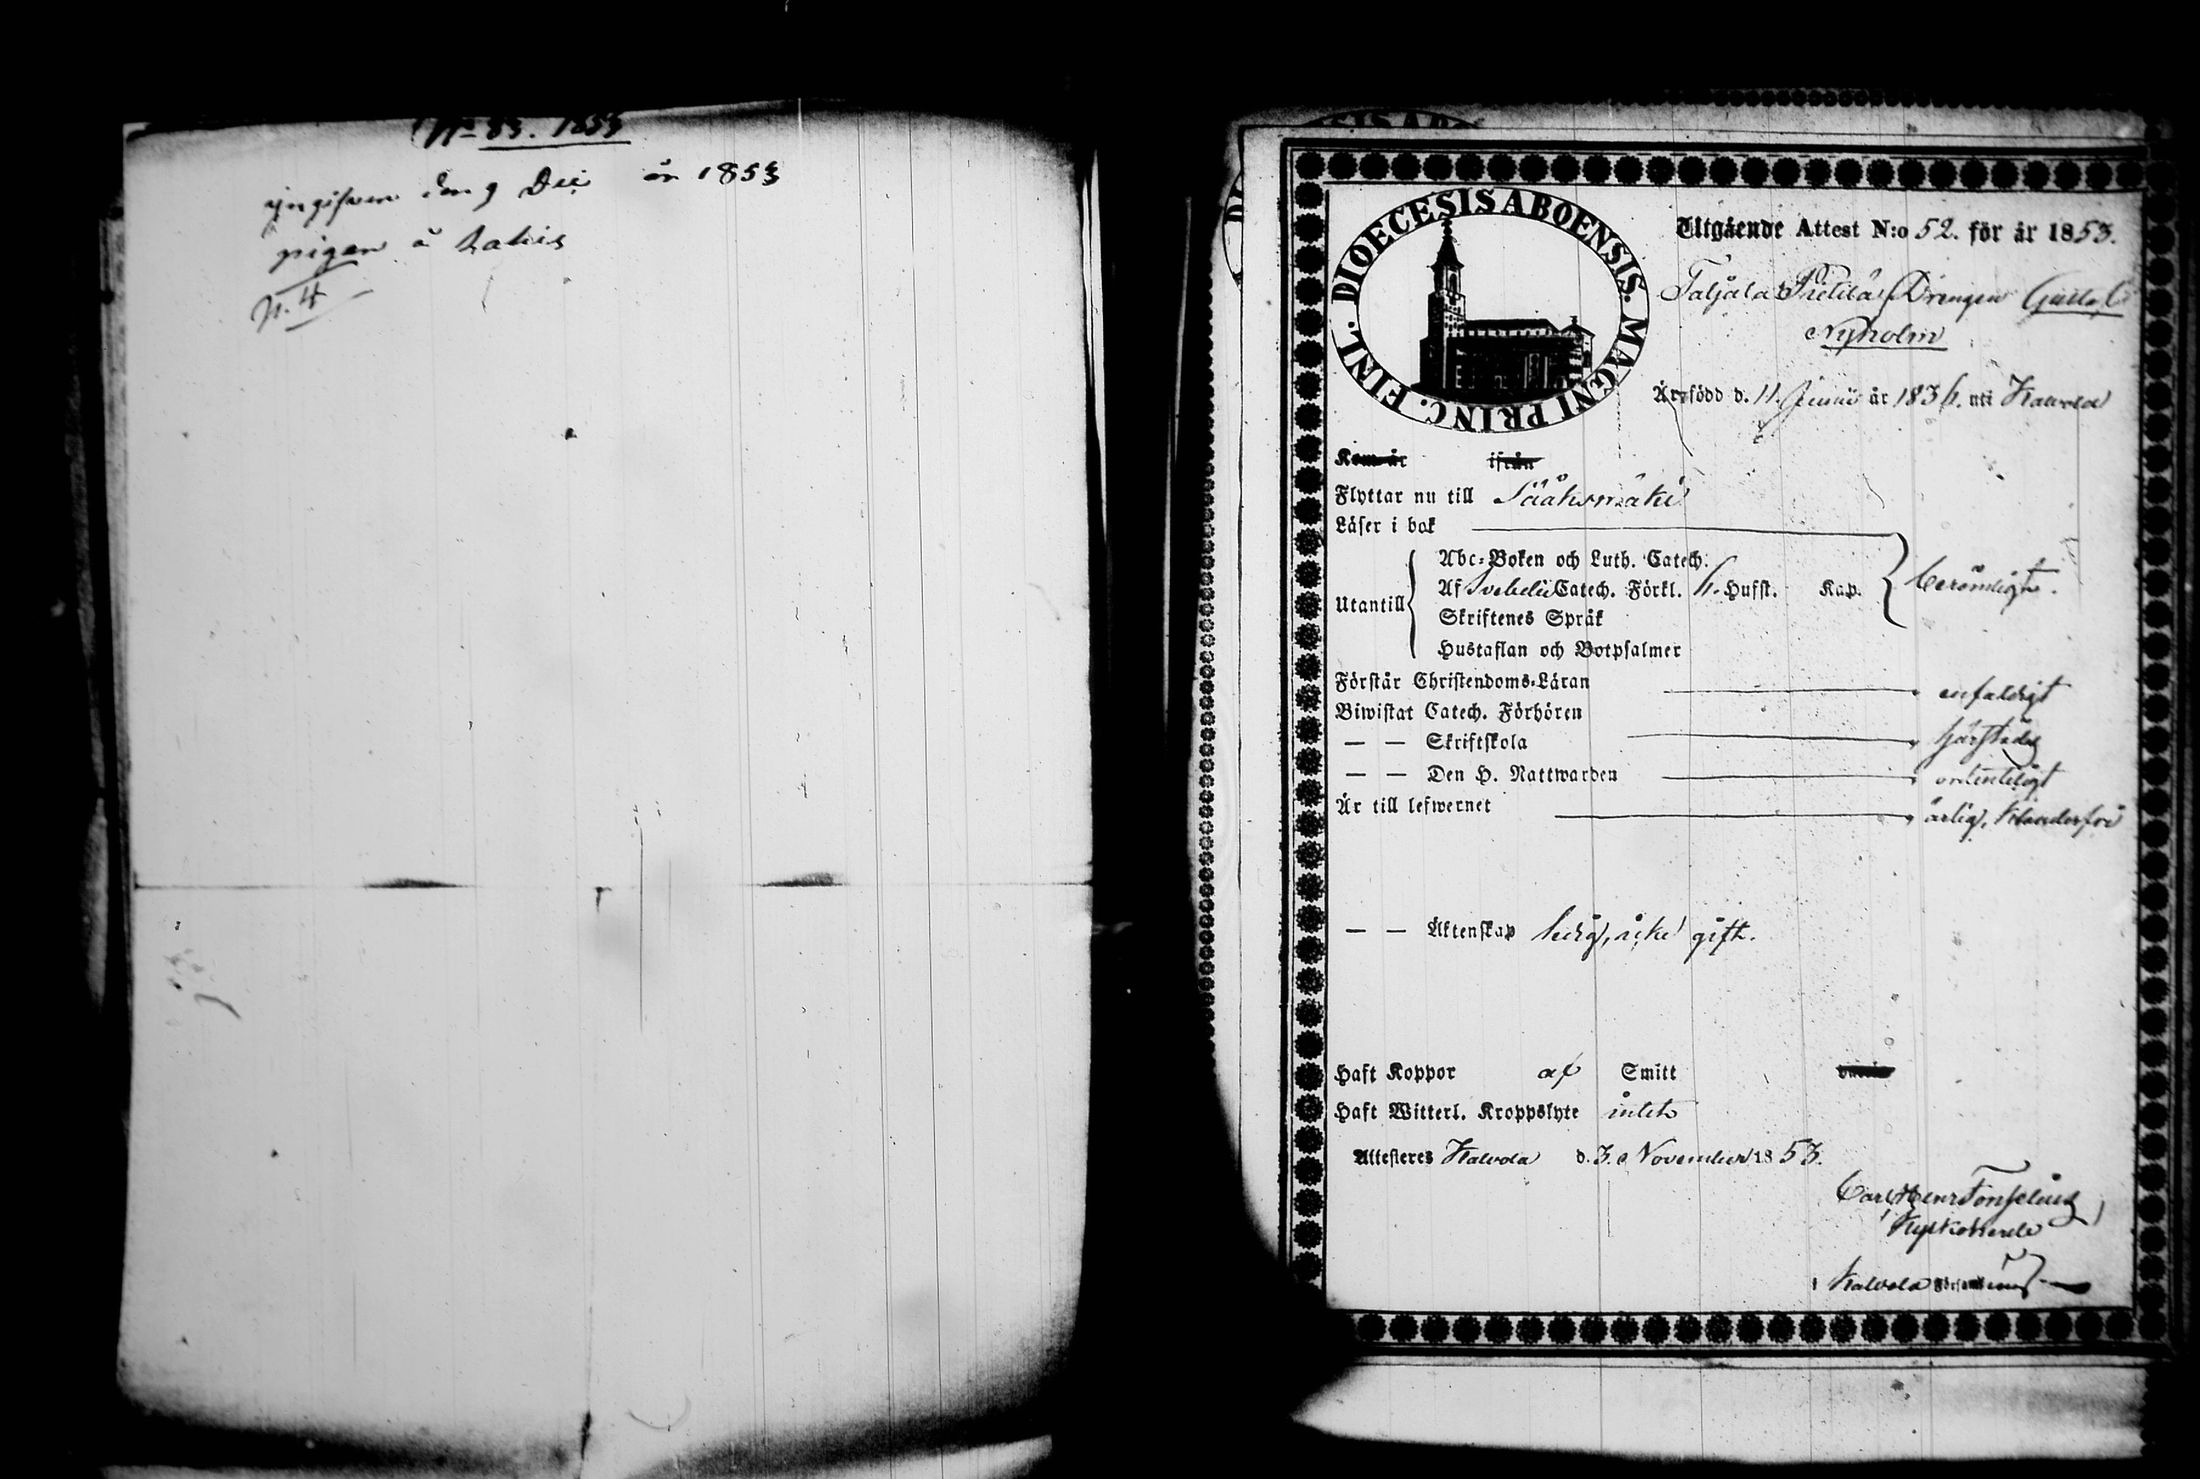 No 83. 1853
ingifven den 9 Dec år 1853
pigan å
N. 4
DIOECESIS ABOENSIS. MAGNI PRINC. FINL.
Utgående Attest N:o 52. för år 1853.
Drengen Gustaf
Nyholm
Är född d. 11. Junii år 1836. uti Kalvola
Kom år ifrån
Flyttar nu till Sääksmäki
Läser i bok
Abc-Boken och Luth. Catech.
Utantill Af Svebelii Catech. Förkl. 6. Hufst. Kap. berömligt.
Skriftenes Språk
Hustaflan och Botpsalmer
Förstår Christendoms-Läran enfaldigt
Biwistat Catech. Förhören
— — Skriftskola härstädes
— — Den H. Nattwarden ordentligt
Är till lefwernet ärlig, klanderfri
— — Äktenskap ledig, icke gift.
Haft Koppor af Smitt
Haft Witterl. Kroppslyte intet
Attesteres Kalvola d. 3. November 1853.
Carl Henr Fonselius
Kyrkoherde
i Kalvola Församling